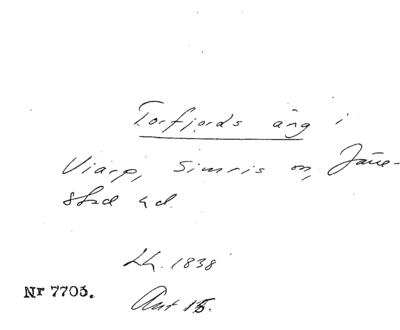 Torfjords äng i
Viarp, Simris sn, Järre-
stad hd.
Lh. 1838
Nr 7705.
Ant 15.